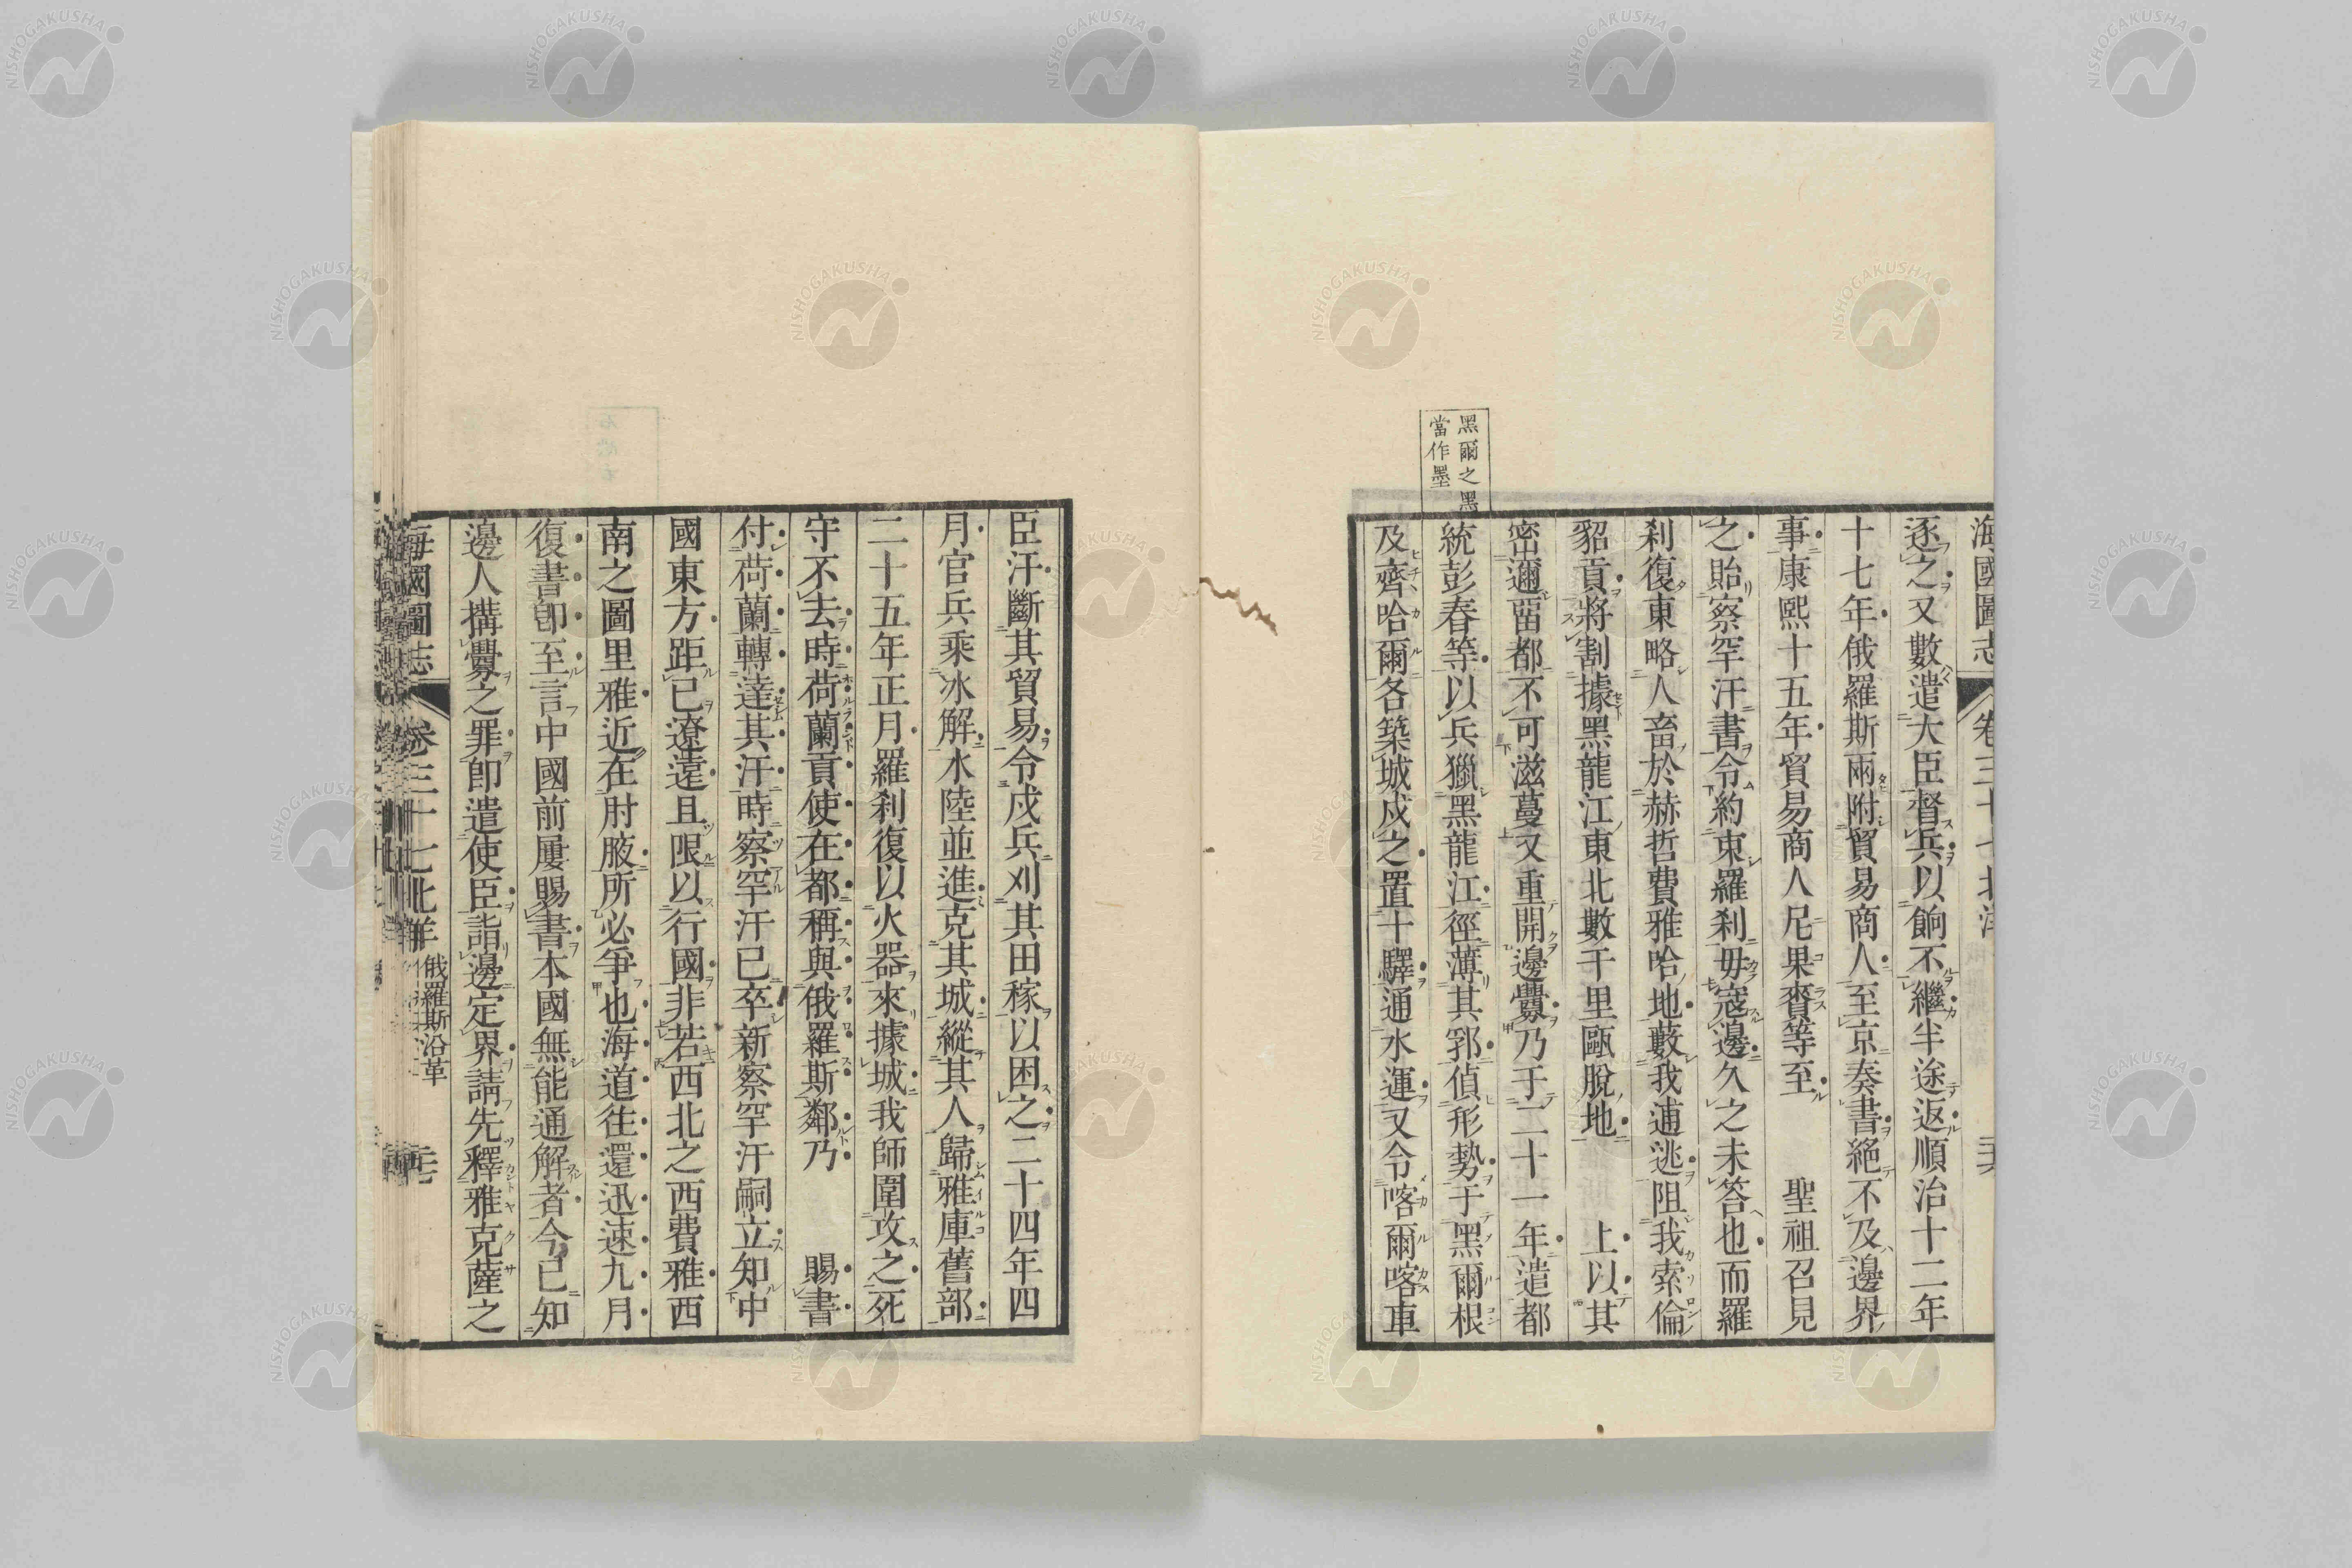 海國圖志 卷三十七北洋
逐之又數遣大臣督兵以餉不繼半途返順治十二年
十七年俄羅斯兩附貿易商人至京奏書絕不及邊界
事康熙十五年貿易商人尼果賚等至 聖祖召見
之貽察罕汗書令約束羅刹毋寇邊久之未答也而羅
刹復東略人畜於赫哲費雅哈地藪我逋逃阻我索倫
貂貢將割據黑龍江東北數千里甌脫地 上以其
密邇畱都不可滋蔓又重開邊釁乃于二十一年遣都
統彭春等以兵獵黑龍江徑薄其郛偵形勢于黑爾根
及齊哈爾各築城戍之置十驛通水運又令喀爾喀車
黑爾之黑
當作墨
臣汗斷其貿易令戍兵刈其田稼以困之二十四年四
月官兵乘冰解水陸並進克其城縱其人歸雅庫舊部
二十五年正月羅刹復以火器來據城我師圍攻之死
守不去時荷蘭貢使在都稱與俄羅斯鄰乃 賜書
付荷蘭轉達其汗時察罕汗已卒新察罕汗嗣立知中
國東方距已遼遠且限以行國非若西北之西費雅西
南之圖里雅近在肘腋所必爭也海道往還迅速九月
復書卽至言中國前屢賜書本國無能通解者今已知
邊人搆釁之罪卽遣使臣詣邊定界請先釋雅克薩之
海國圖志 卷三十七北洋 俄羅斯沿革 三七
NISHOGAKUSHA